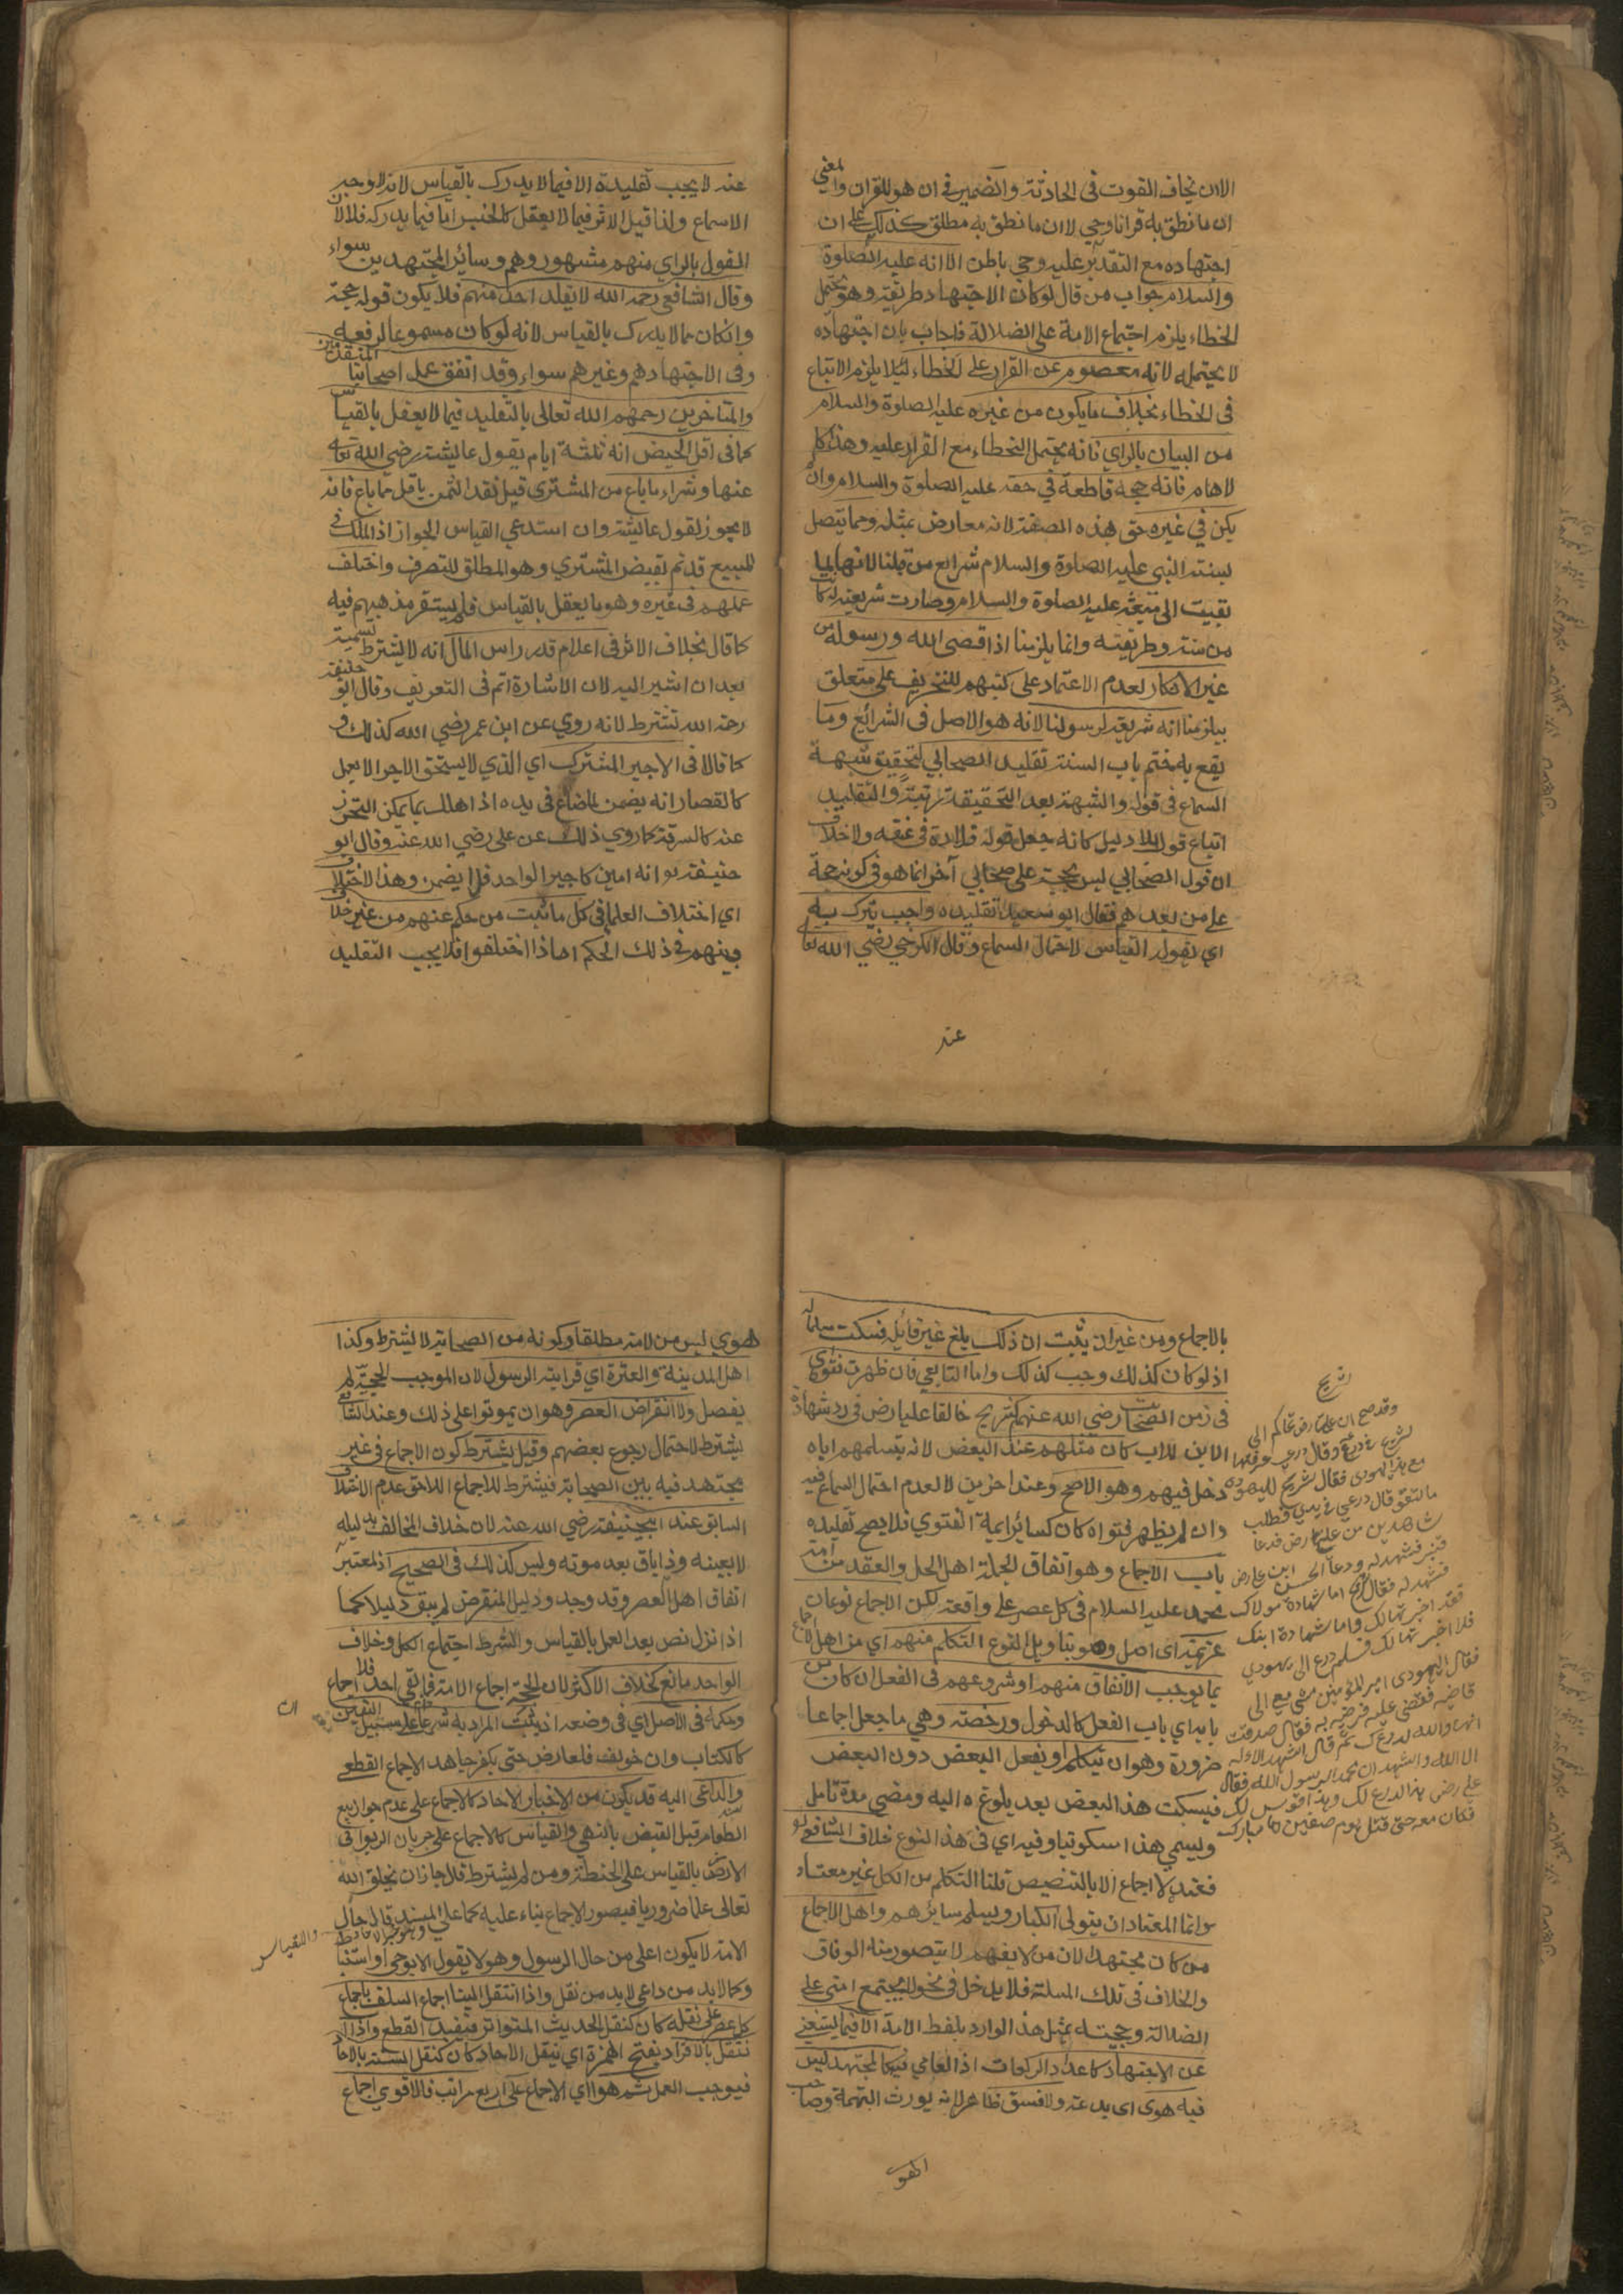 الا ان يخاف الفوت فى الحادثة والضمير فى ان هو للقران والمعني
ان ما نطق به قرانا وحي لا ان ما نطق به مطلق كذلك على ان
اجتهاده مع التقدير عليه وحي باطن الا انه عليه الصلوة
والسلام جواب من قال لو كان الاجتهاد طريقته وهو يحتمل
الخطاء يلزم اجتماع الامة على الضلالة فاجاب بان اجتهاده
لا يحتمله لانه معصوم عن القرار على الخطاء لئلا يلزم الاتباع
فى الخطاء بخلاف ما يكون من غيره عليه الصلوة والسلام
من البيان بالراي فانه يحتمل الخطاء مع القرار عليه وهذا كالا
لالهام فانه حجة قاطعة في حقه عليه الصلوة والسلام وان لم
يكن في غيره حتى بهذه الصفة لانه معارض بمثله ومما يتصل
بسنة النبي عليه الصلوة والسلام شرايع من قبلنا لانها لما
بقيت الى مبعثه عليه الصلوة والسلام وصارت شريعة له كانت
من سنته وطريقته وانما يلزمنا اذا قصى الله ورسوله من
غير الانكار لعدم الاعتماد على كتبهم للتحريف على متعلق
بيلزمنا انه شريعة لرسولنا لانه هو الاصل فى الشرائع وما
يقع به ختم باب السنة تقليد الصحابي لتحقيق شبهة
السماع فى قوله والشبهة بعد الحقيقة رتبة والتقليد
اتباع قول بلا دليل كانه جعل قوله قلادة فى عنقه ولا خلاف
ان قول الصحابي ليس بحجة على صحابي آخر انما هو فى كونه حجة
على من بعدهم فقال ابو سعيد تقليده واجب يترك به
اي بقوله القياس لاحتمال السماع وقال الكرخي رضي الله تعالى
عنه
عنه لا يجب تقليده الا فيما لا يدرك بالقياس لانه لا وجه
الا السماع ولذا قيل الاثر فيما لا يعقل كالخبر اما فيما يدركه فلا لان
القول بالراي منهم مشهور وهم وسائر المجتهدين سواء
وقال الشافعي رحمه الله لا يقلد احد منهم فلا يكون قوله حجة
وان كان مما لا يدرك بالقياس لانه لو كان مسموعا لرفعه
وفى الاجتهاد هم وغيرهم سواء وقد اتفق عمل اصحابنا المتقدمين
والمتاخرين رحمهم الله تعالى بالتقليد فيما لا يعقل بالقياس
كما فى اقل الحيض انه ثلثة ايام بقول عائشة رضي الله تعالى
عنها وشراء ما باع من المشتري قبل نقد الثمن باقل مما باع فانه
لا يجوز لقول عائشة وان استدعي القياس الجواز اذ الملك في
المبيع قد تم بقبض المشتري وهو المطلق للتصرف واختلف
عملهم فى غيره وهو ما يعقل بالقياس فلم يستقر مذهبهم فيه
كما قالا بخلاف الاثر فى اعلام قدر راس المال انه لا يشترط تسمية
بعد ان اشير اليه لان الاشارة اتم فى التعريف وقال ابو حنيفة
رحمه الله تشترط لانه روي عن ابن عمر رضي الله كذلك و
كما قالا فى الاجير المشترك اي الذي لا يستحق الاجر الا بعمل
كالقصار انه يضمن لما ضاع فى يده اذا هلك بما يمكن التحرز
عنه كالسرقة كما روي ذلك عن على رضي الله عنه وقال ابو
حنيفة انه امين كاجير الواحد فلا يضمن وهذا الاختلاف
اي اختلاف العلما فى كل ما ثبت من حكم عنهم من غير خلاف
بينهم فى ذلك الحكم اما اذا اختلفوا فلا يجب التقليد
بالاجماع ومن غير ان يثبت ان ذلك بلغ غير قائله فسكت مسلما له
اذ لو كان كذلك وجب كذلك واما التابعي فان ظهرت فتواه
فى زمن الصحابة رضي الله عنهم كشريح خالف عليا رض فى رد شهادة
الابن للاب كان مثلهم عند البعض لانه بتسليمهم اياه
دخل فيهم وهو الاصح وعند اخرين لا لعدم احتمال السماع فيه
وان لم يظهر فتواه كان كسائر ايمة الفتوي فلا يصح تقليده
باب الاجماع وهو اتفاق الجملة اهل الحل والعقد من امة
محمد عليه السلام فى كل عصر على واقعة لكن الاجماع نوعان
عزيمة اى اصل وهو بناويل النوع التكلم منهم اي من اهل الاجماع
بما يوجب الاتفاق منهم او شروعهم فى الفعل ان كان من
بابه اي باب الفعل كالدخول ورخصته وهي ما جعل اجماعا
ضرورة وهو ان يتكلم او يفعل البعض دون البعض
فيسكت هذا البعض بعد بلوغه اليه ومضي مدة تامل
ويسمي هذا سكوتيا وفيه اي فى هذا النوع خلاف الشافعي
فعنده لا اجماع الا بالتنصيص قلنا التكلم من الكل غير معتاد
وانما المعتاد ان يتولى الكبار ويسلم سائرهم واهل الاجماع
من كان مجتهدا لان من لا يفهم لا يتصور منه الوفاق
والخلاف فى تلك المسئلة فلا يدخل فى نحو لا يجتمع امتى على
الضلالة وحجيته بمثل هذا الوارد بلفظ الامة الا فيما يستغني
عن الاجتهاد كاعداد الركعات اذ العامي فيه كالمجتهد ليس
فيه هوى اى بدعة ولا فسق ظاهر لانه يورث التهمة وصاحب
الهوى
شريح
وقد صح ان عليا رض تحاكم الى
شريح فى درع وقال درعي عرفتها
مع هذا اليهودى فقال شريح لليهودى
ما تقول قال درعي فى يدي فطلب
شاهدين من علي رض فدعا
قنبر فشهد له ودعا الحسن ابن على رض
فشهد له فقال شريح اما شهادة مولاك
فقد اجزتها لك واما شهادة ابنك
فلا اجيزها لك فسلم درع الى يهودي
فقال اليهودى امير المؤمنين مشى معي الى
قاضيه فقضى عليه فرضي به فقال صدقت
انها والله لدرعك ثم قال اشهد ان لا اله
الا الله واشهد ان محمدا رسول الله فقال
علي رض هذا الدرع لك وهذا الفرس لك
فكان معه حتى قتل يوم صفين
هوي ليس من الامة مطلقا وكونه من الصحابة لا يشترط وكذا
اهل المدينة والعترة اي قرابة الرسول لان الموجب للحجية لم
يفصل ولا انقراض العصر وهو ان يموتوا على ذلك وعند الشافعي
يشترط لاحتمال رجوع بعضهم وقيل يشترط كون الاجماع فى غير
مجتهد فيه بين الصحابة فيشترط للاجماع اللاحق عدم الاختلاف
السابق عند ابيحنيفة رضي الله عنه لان خلاف المخالف بدليله
لا بعينه وذا باق بعد موته وليس كذلك فى الصحيح اذ المعتبر
اتفاق اهل العصر وقد وجد ودليل المنقرض لم يبق دليلا كما
اذا نزل نص بعد العمل بالقياس والشرط اجتماع الكل وخلاف
الواحد مانع كخلاف الاكثر لان الحجة اجماع الامة فما بقي احد فلا اجماع
وحكمه فى الاصل اي فى وضعه ان يثبت المراد به شرعا على سبيل اليقين
كالكتاب وان خولف فلعارض حتى يكفر جاهد الاجماع القطعي
والداعى اليه قد يكون من الاخبار الاحاد كالاجماع على عدم جواز بيع
الطعام قبل القبض بالنهي والقياس كالاجماع على جريان الربوا فى
الارز بالقياس على الحنطة ومن لم يشترط قال جاز ان يخلق الله
تعالى علما ضروريا فيصور الاجماع بناء عليه كما على المسند قال حال
الامة لا يكون اعلى من حال الرسول وهو لا يقول الا بوحي او استنباط
وكما لا بد من داعي لا بد من نقل واذا انتقل الينا اجماع السلف باجماع
كل عصر على نقله كان كنقل الحديث المتواتر فيفيد القطع واذا
انتقل بالافراد بفتح الهمزة اي بنقل الاحاد كان كنقل السنة بالاحاد
فيوجب العمل ثم هو اي الاجماع على اربع مراتب فالاقوي اجماع
والقياس